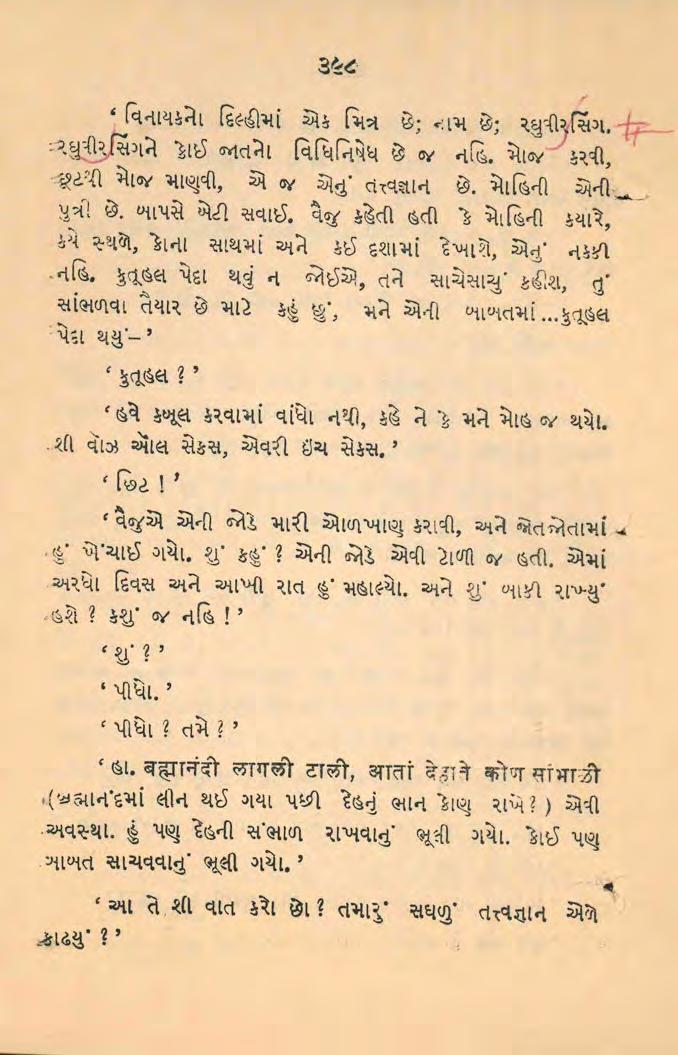 ૩૯૮
‘ વિનાયકનો દિલ્હીમાં એક મિત્ર છે; નામ છે; રઘુવીરસિંગ.
રઘુવીરસિંગને કોઈ જાતનો વિધિનિષેધ છે જ નહિ. મોજ કરવી,
છૂટથી મોજ માણવી, એ જ એનું તત્ત્વજ્ઞાન છે. મોહિની એની
પુત્રી છે. બાપસે બેટી સવાઈ. વૈજુ કહેતી હતી કે મોહિની કયારે,
કયે સ્થળે, કોના સાથમાં અને કઈ દશામાં દેખાશે, એનું નકકી
નહિ. કુતૂહલ પેદા થવું ન જોઈએ, તને સાચેસાચું કહીશ, તું
સાંભળવા તૈયાર છે માટે કહું છું, મને એની બાબતમાં...કુતૂહલ
પેદા થયું–’
‘ કુતૂહલ ? ’
‘ હવે કબૂલ કરવામાં વાંધો નથી, કહે ને કે મને મોહ જ થયો.
શી વૉઝ ઑલ સેકસ, એવરી ઇંચ સેકસ. ’
‘ છિટ ! ’
‘ વૈજુએ એની જોડે મારી ઓળખાણ કરાવી, અને જોતજોતામાં
હું ખેંચાઈ ગયો. શું કહું ? એની જોડે એવી ટોળી જ હતી. એમાં
અરધો દિવસ અને આખી રાત હું મહાલ્યો. અને શું બાકી રાખ્યું
હશે ? કશું જ નહિ ! ’
‘ શું ? ’
‘ પીધો. ’
‘ પીધો ? તમે ? ’
‘ હા. ब्रह्मानंदी लागली टाली, आतां देहाने कोण सांभाळी
(બ્રહ્માનંદમાં લીન થઈ ગયા પછી દેહનું ભાન કોણ રાખે? ) એવી
અવસ્થા. હું પણ દેહની સંભાળ રાખવાનું ભૂલી ગયો. કોઈ પણ
બાબત સાચવવાનું ભૂલી ગયો. ’
‘ આ તે શી વાત કરો છો ? તમારું સઘળું તત્ત્વજ્ઞાન એળે
કાઢયું ? ’